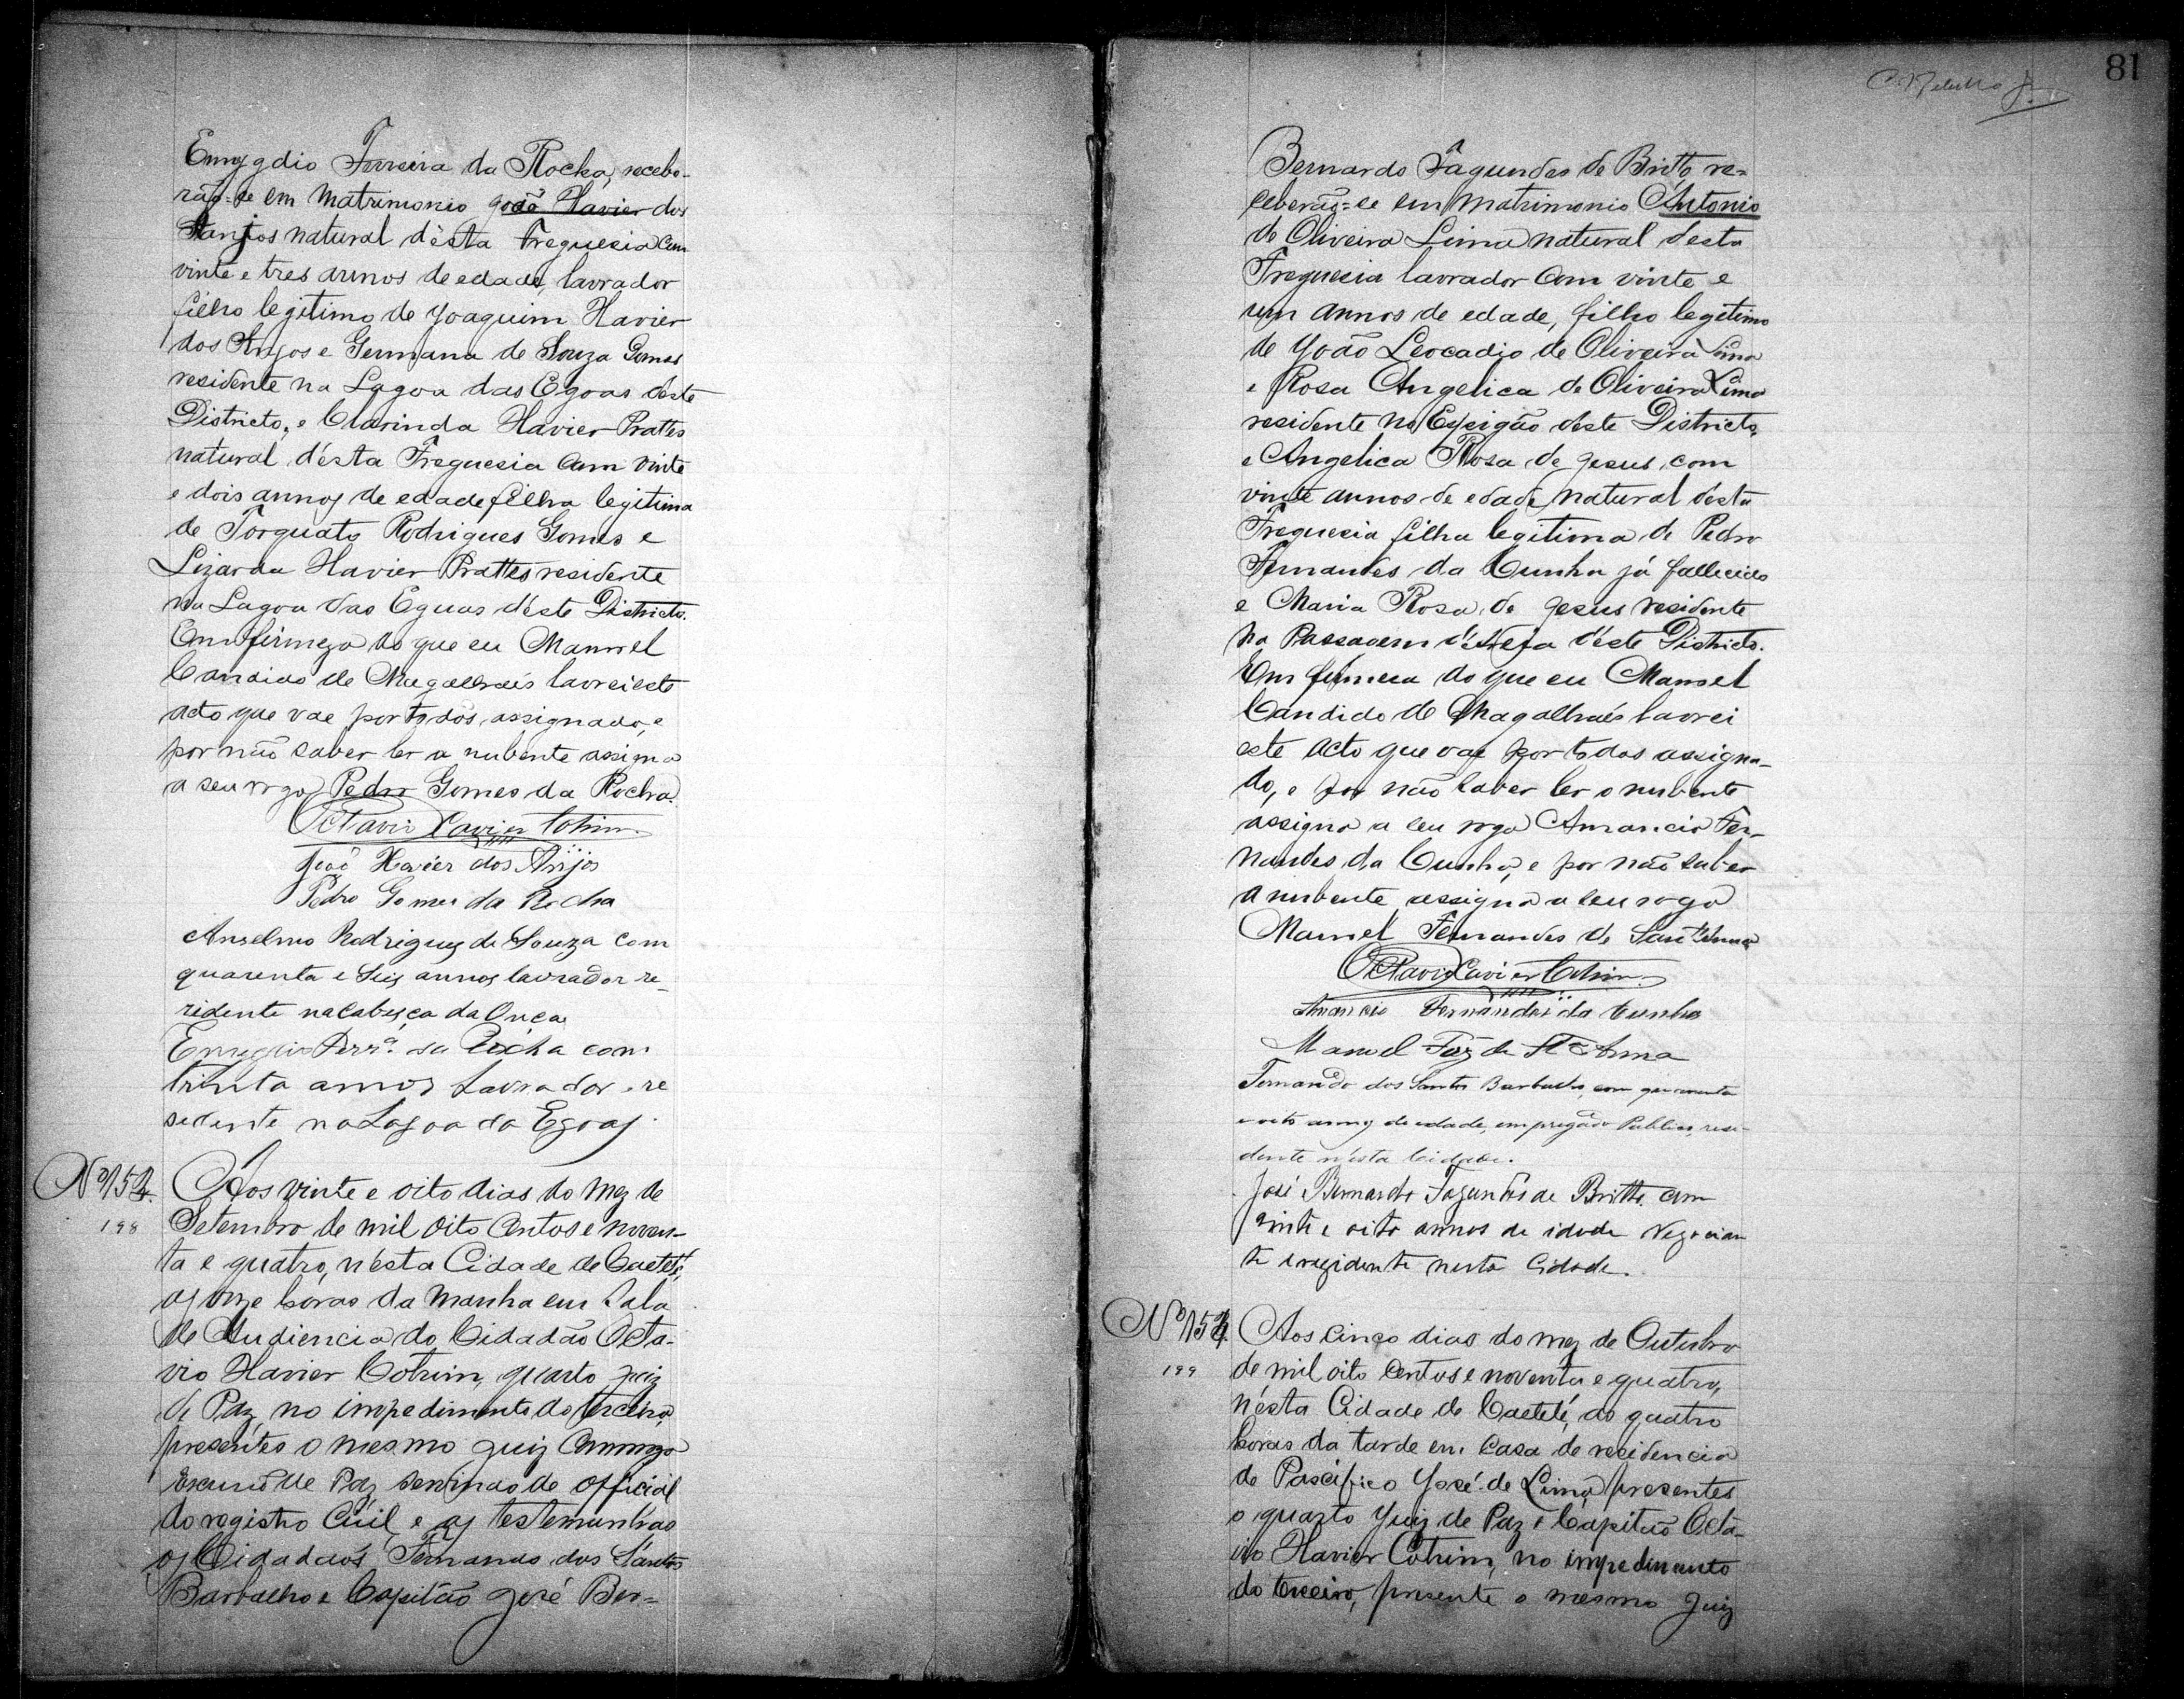 Emygdio Ferreira da Rocha, recebe-
rão-se em Matrimonio João Xavier dos
Anjos natural désta Freguesia com
vinte e tres annos de edade, lavrador
filho legitimo de Joaquim Xavier
dos Anjos e Germana de Souza Gomes
residente na Lagoa das Egoas deste
Districto, e Clarinda Xavier Prattes
natural désta Freguesia com vinte
e dois annos de edade filha legitima
de Torquato Rodrigues Gomes e
Lizarda Xavier Prattes residente
na Lagoa das Eguas déste Districto.
Em firmeza do que eu Manoel
Candido de Magalhaẽs lavrei este
acto que vae por todos assignado, e
por não saber ler a nubente assigna
a seu rogo Pedro Gomes da Rocha.
Octavio Xavier Cotrim.
João Xavier dos Anjos
Pedro Gomes da Rocha
Anselmo Rodrigues de Souza com
quarenta e seis annos lavrador re-
zidente na Cabeça da Onça
Emygdio Ferrª da Rocha com
trinta annos Lavrador e re
sidente na Lagoa da Egoas
Nº 152.
198
Aos vinte e oito dias do mez de
Setembro de mil oito centos e noven-
ta e quatro, nésta Cidade de Caeteté,
as onze horas da manha em Sala
de Audiencia do Cidadão Octa-
vio Xavier Cotrim, quarto juiz
de Paz, no impedimento do terceiro
presentes o mesmo Juiz Commigo
Escrivão de Paz servindo de official
do registro Civil e as testemunhas
os Cidadaõs Fernando dos Santos
Barbalho e Capitão José Ber-
81
Bernardo Fagundes de Britto, re-
ceberão-se em Matrimonio Antonio
de Oliveira Lima natural desta
Freguesia lavrador com vinte e
um annos de edade, filho legitimo
de João Leocadio de Oliveira Lima
e Rosa Angelica de Oliveira Lima
residente no Espigão deste Districto,
e Angelica Rosa de Jesus, com
vinte annos de edade natural désta
Freguesia filha legitima de Pedro
Fernandes da Cunha já fallecido
e Maria Rosa de Jesus residente
na Passagem déste Districto.
Em firmeza do que eu Manoel
Candido de Magalhaẽs lavrei
este acto que vae por todos assigna-
do, e por não saber ler o nubente
assigna a seu rogo Amancio Fer-
nandes da Cunha, e por não saber
a nubente assigna a seu rogo
Manoel Fernandes de Sant'Anna
Octavio Xavier Cotrim.
Amancio Fernandes da Cunha
Manoel Frz de Stª Anna
Fernando dos Santos Barbalho, com quarenta
e oito annos de edade, empregado Publico, resi-
dente n'esta Cidade.
José Bernardo Fagundes de Britto. com
vinte e oito annos de idade Negocian
te e rezidente nesta Cidade.
Nº 153.
199
Aos cinco dias do mez de Outubro
de mil oito centos e noventa e quatro,
nésta Cidade de Caeteté, as quatro
horas da tarde em casa de residencia
de Pascifico José de Lima presentes
o quarto Juiz de Paz e Capitão Octa-
vio Xavier Cotrim, no impedimento
do terceiro, presente o mesmo Juiz